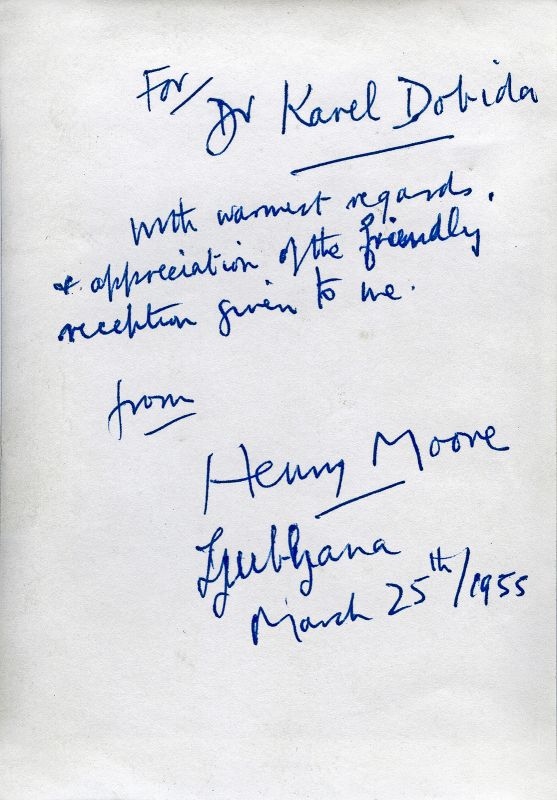 For/
Dr Karel Dobida
With warmest regards,
& appreciation of the friendly
reception given to me.
from
Henry Moore
Ljubljana
March 25th/1955